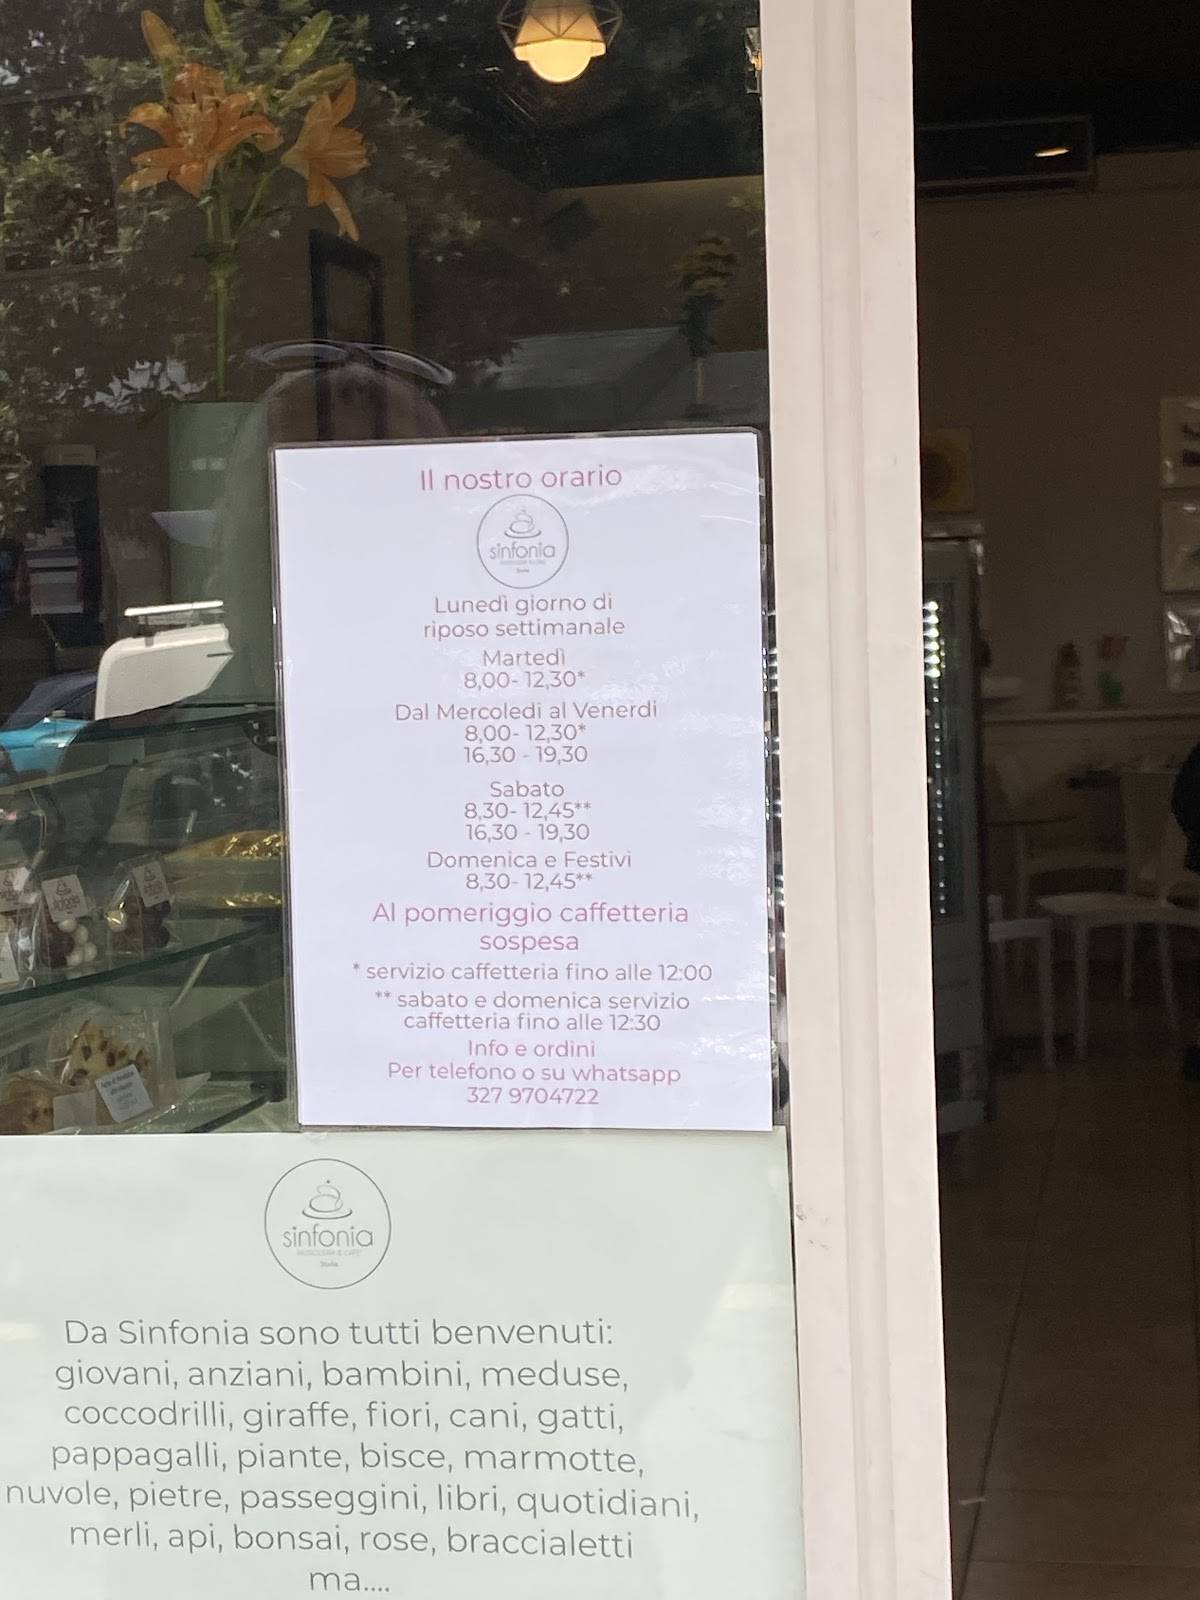 Il nostro orario
sinfonia
Lunedì giorno di
riposo settimanale
Martedì
8,00- 12,30*
Dal Mercoledì al Venerdì
8,00- 12,30*
16,30 - 19,30
Sabato
8,30- 12,45**
16,30 - 19,30
Domenica e Festivi
8,30- 12,45**
Al pomeriggio caffetteria
sospesa
* servizio caffetteria fino alle 12:00
** sabato e domenica servizio
caffetteria fino alle 12:30
Info e ordini
Per telefono o su whatsapp
327 9704722
sinfonia
Da Sinfonia sono tutti benvenuti:
giovani, anziani, bambini, meduse,
coccodrilli, giraffe, fiori, cani, gatti,
pappagalli, piante, bisce, marmotte,
nuvole, pietre, passeggini, libri, quotidiani,
merli, api, bonsai, rose, braccialetti
ma....